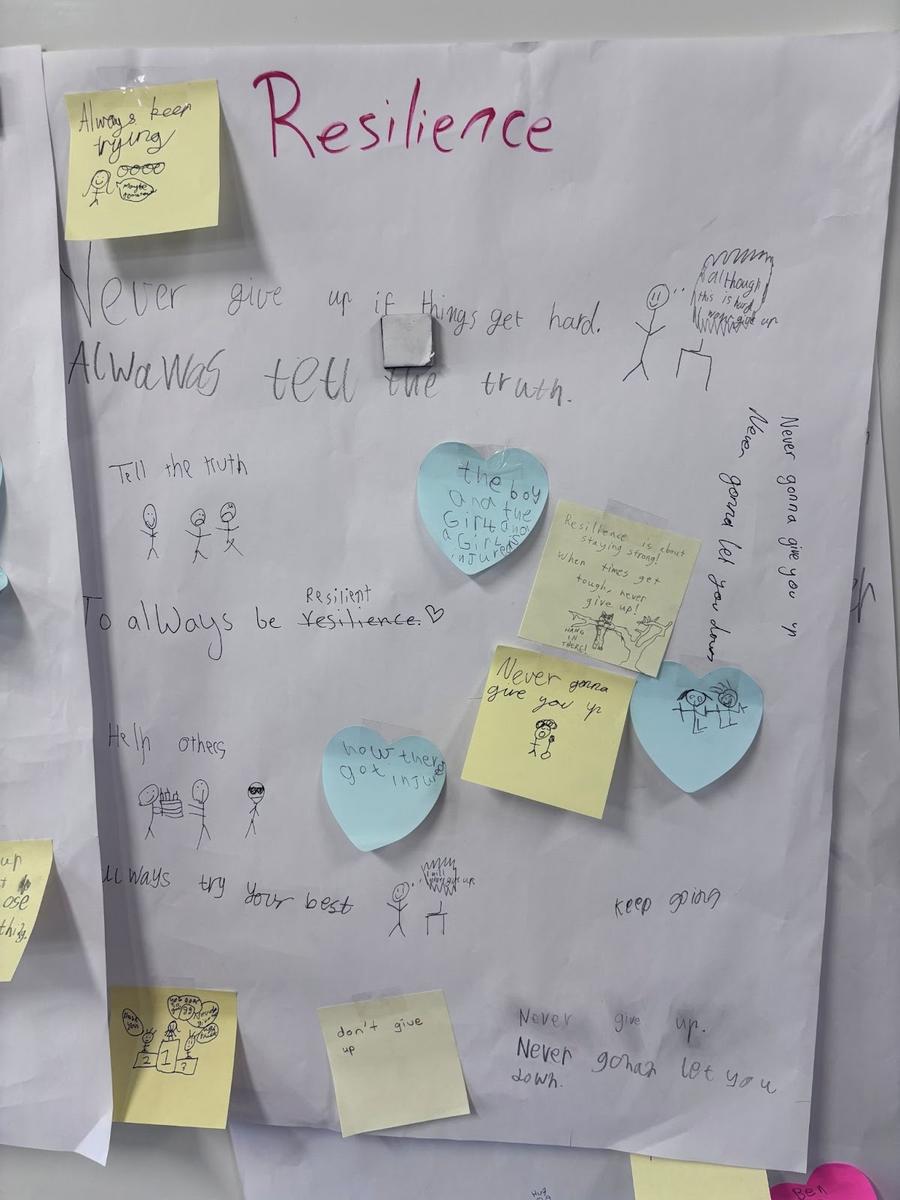 Resilience
Always keep
trying
Maybe
Never give up if things get hard.
although
this is hard
wont give up
Alwawas tell the truth.
Tell the truth
the boy
and the
Girl and
a Girl
injured
Resilience is about
staying strong!
When times get
tough, never
give up!
HANG
IN
THERE!
Never gonna give you up
Never gonna let you down
Resilient
To always be resilience.
Never gonna
give you up
Help others
how ther
got injured
always try your best
I will
give up
keep going
up
ose
thing.
2 1 3
don't give
up
Never give up.
Never gonan let you
down.
Ben